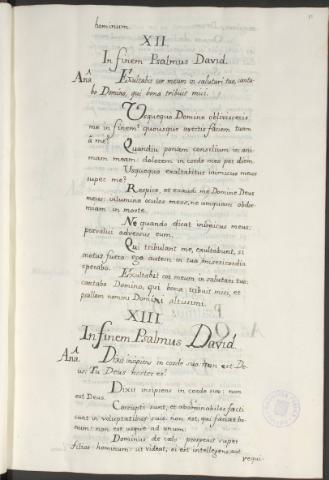 hominum.
XII
In finem Psalmus David.
Aña Exultabit cor meum in salutari tuo, canta-
bo Domino, qui bona tribuit mihi.
Usquequo Domine oblivisceris
me in finem? quousque avertis faciem tuam
à me?
Quandiu ponam consilium in ani-
mam meam: dolorem in corde meo per diem.
Usquequo exaltabitur inimicus meus
super me?
Respice, et exaudi me Domine Deus
meus: inlumina oculos meos, ne umquam obdor-
miam in morte.
Ne quando dicat inimicus meus:
prevalui adversus eum.
Qui tribulant me, exultabunt, si
motus fuero: ego autem in tua misericordia
sperabo.
Exultabit cor meum in salutari tuo:
cantabo Domino, qui bona tribuit mihi, et
psallam nomini Domini altissimi.
XIII
In finem Psalmus David.
Aña. Dixit insipiens in corde suo: non est De-
us: Tu Deus noster es?
Dixit insipiens in corde suo: non
est Deus.
Corrupti sunt, et abominabiles facti
sunt in voluptatibus suis: non est, qui faciat bo-
num: non est usque ad unum.
Dominus de cœlo prospexit super
filios hominum: ut videat, si est intellegens, aut
requi-